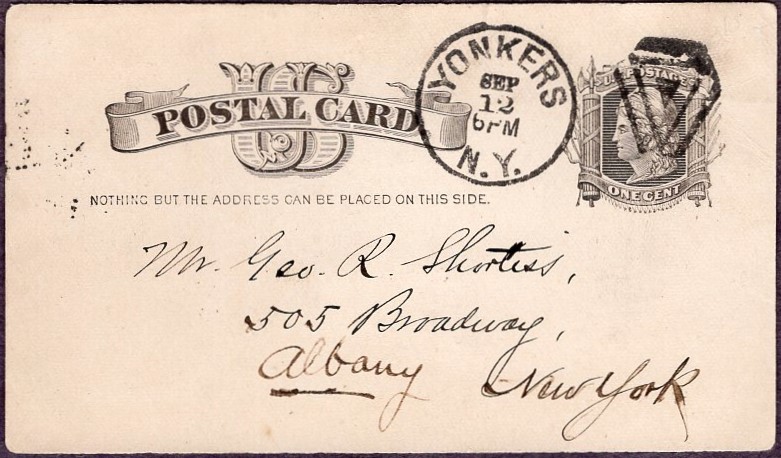 US
POSTAL CARD
YONKERS
SEP
12
6PM
N.Y.
U.S. POSTAGE
ONE CENT
NOTHING BUT THE ADDRESS CAN BE PLACED ON THIS SIDE.
Mr. Geo. R. Shortiss,
505 Broadway,
Albany New York